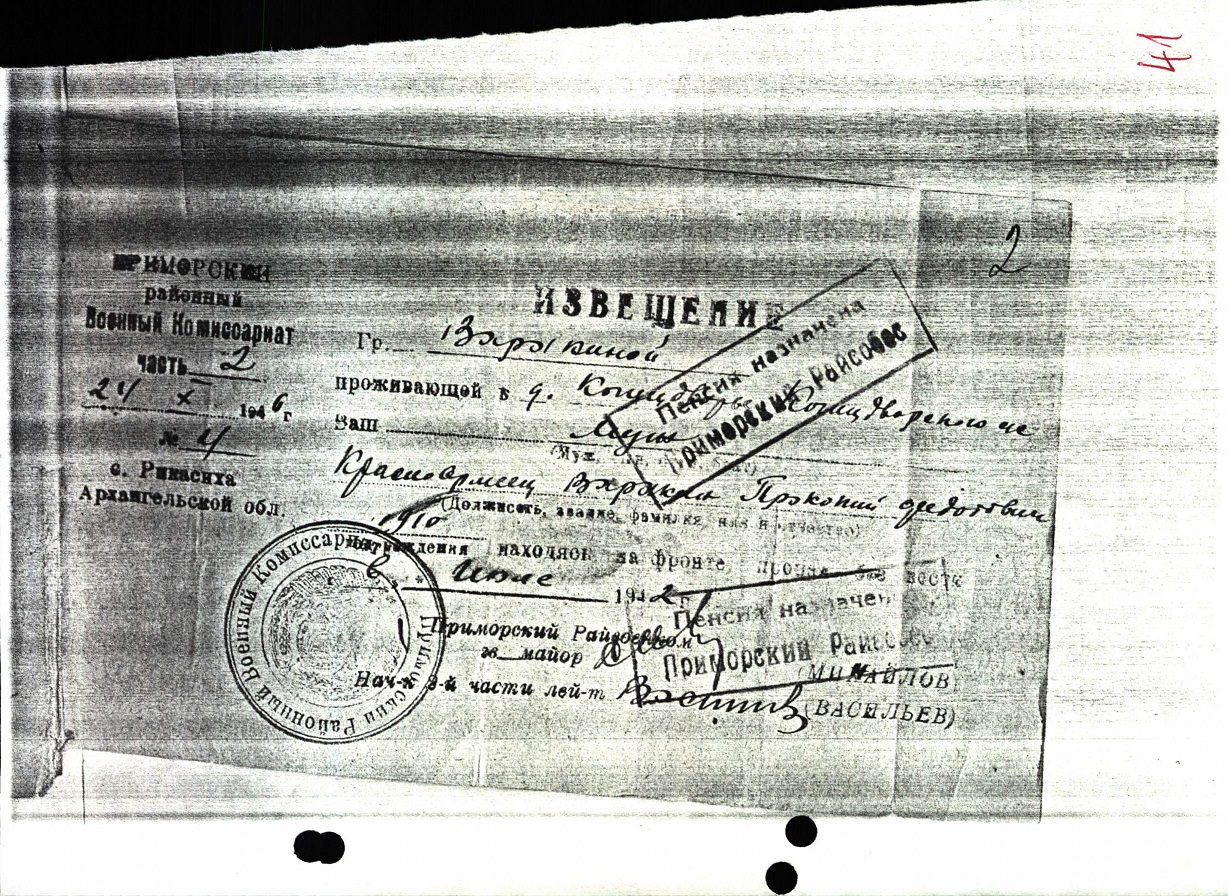 41
2
ПРИМОРСКИЙ
районный
Военный Комиссариат
часть 2
24 X 1946 г
№ 4
с. Рикасиха
Архангельской обл.
ИЗВЕЩЕНИЕ
Гр.
проживающей в д.
Ваш Муж
(Муж,
Красноармеец Прокопий Федотович
(Должность, звание, фамилия, имя и отчество)
1910
рождения находясь на фронте, пропал без вести
в " Июле 1942 г.
Приморский Райвоенком
майор (МИХАЙЛОВ)
Нач-к 2-й части лей-т (ВАСИЛЬЕВ)
Пенсия назначена
Приморский Райсобес
Пенсия назначен
Приморский Райсобес
Приморский Районный Военный Комиссариат